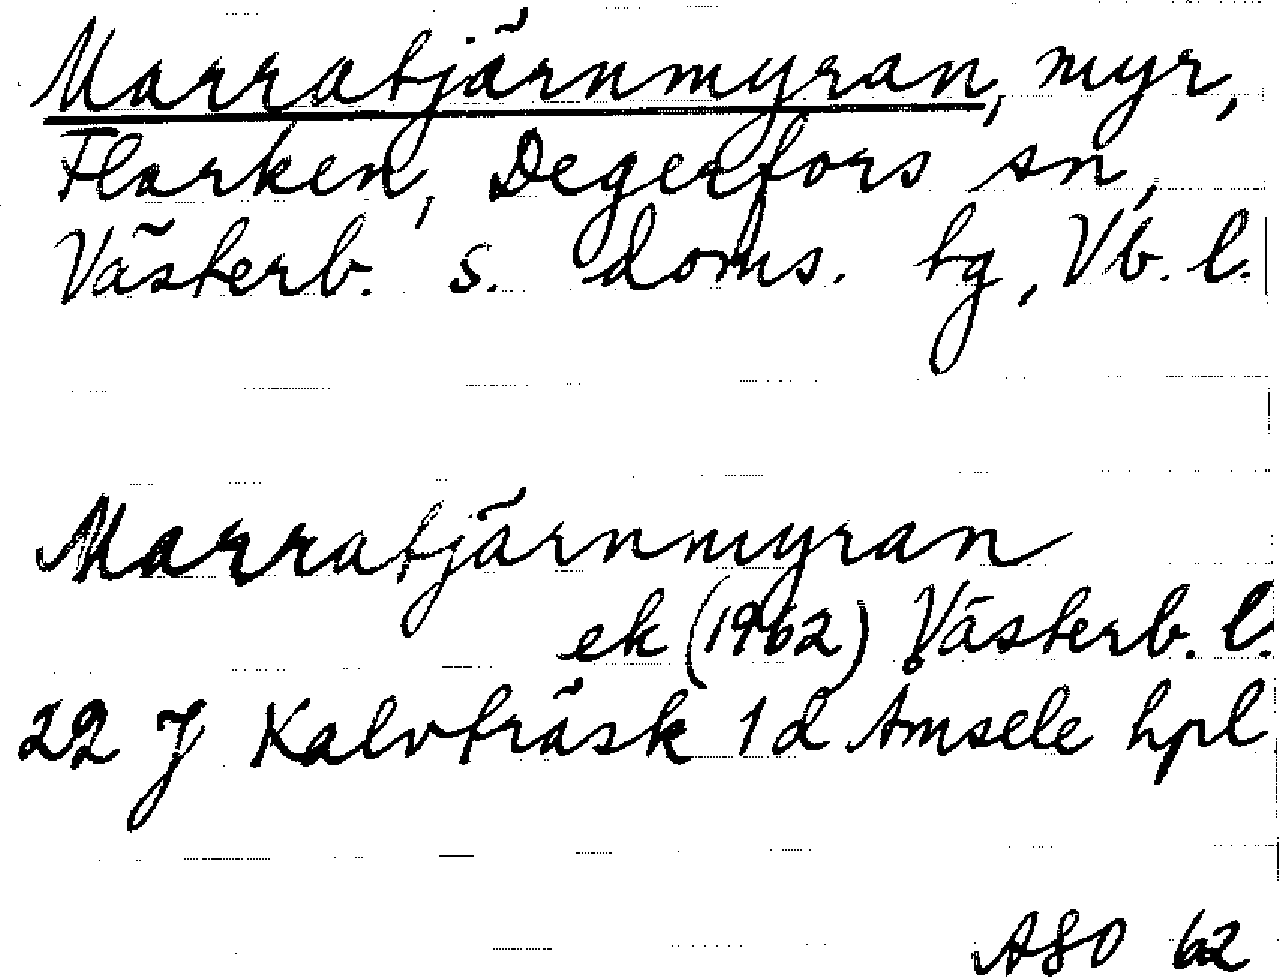 Marratjärnmyran, myr,
Flarken, Degerfors sn,
Västerb. s. doms. tg, Vb. l.
Marratjärnmyran
ek (1962) Västerb. l.
22 J Kalvträsk 1 d Åmsele hpl
ASO 62